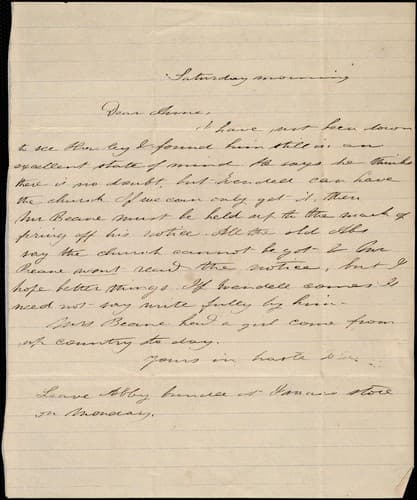 Saturday morning
Dear Anne,
I have not been down
to see Hawley & found him still in an
excellent state of mind He says he thinks
there is no doubt, but Wendell can have
the church If we can only get it, then
Mr Beane must be held up to the mark of
giving off his notice. All the old
say the church cannot be got & Mr
Beane wont read the notice, but I
hope better things. If Wendell comes I
need not say write fully by him.
Mrs Beane had a girl come from
up country to day.
Yours in haste
Leave Abby bundle at store
on Monday.